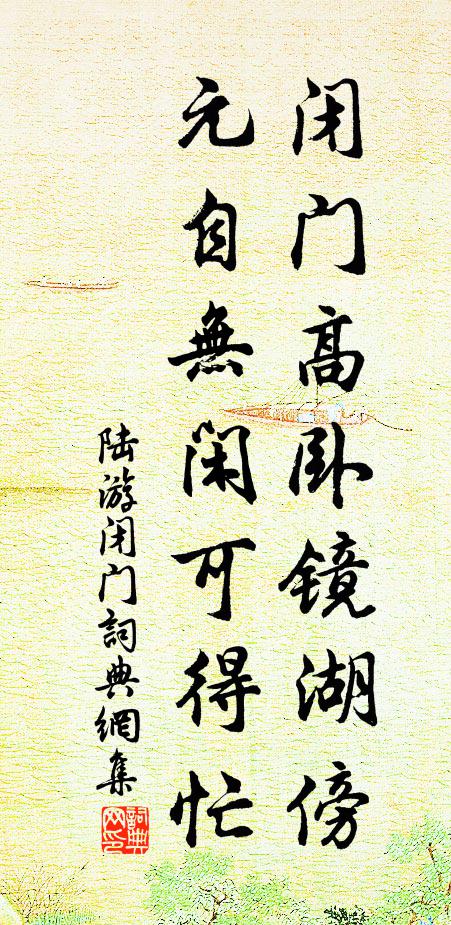 闭门高卧镜湖傍
元自無闲可得忙
陆游闭门詞典網集
詞典网印